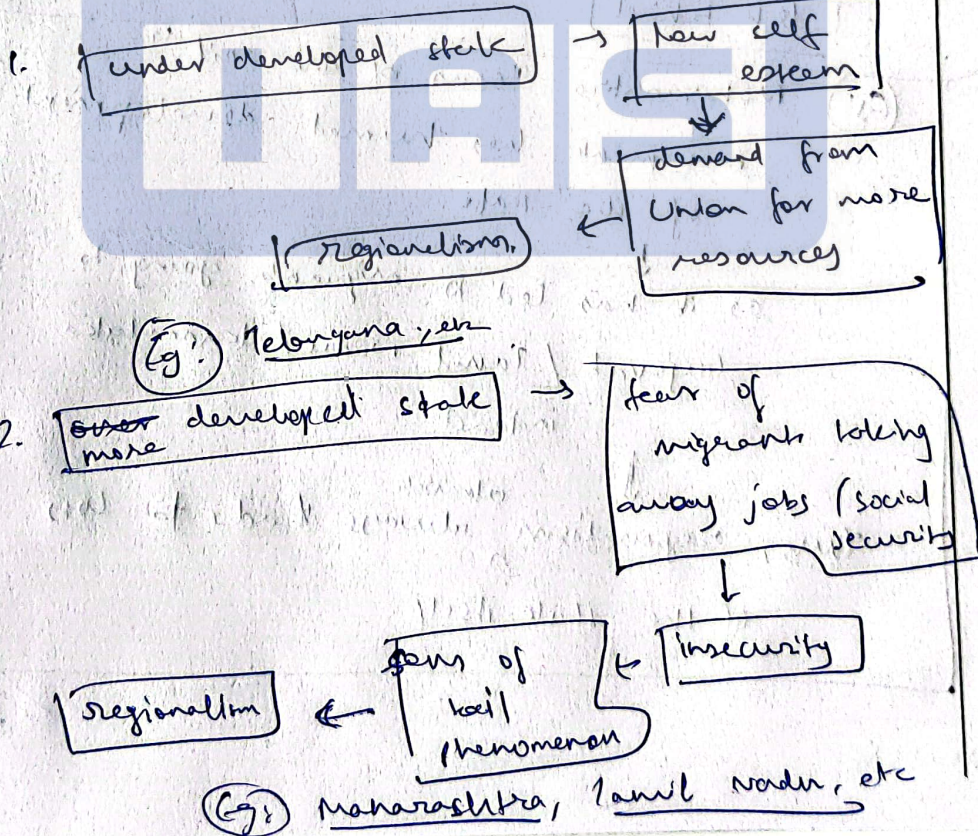 IAS
1. under developed state → low self
esteem
↓
demand from
Union for more
resources
← regionalism.
Eg: Telangana, etc
2. over developed state
more
→ fear of
migrants taking
away jobs / social
security
↓
insecurity
← sons of
soil
phenomenon
← regionalism
Eg: Maharashtra, Tamil nadu, etc